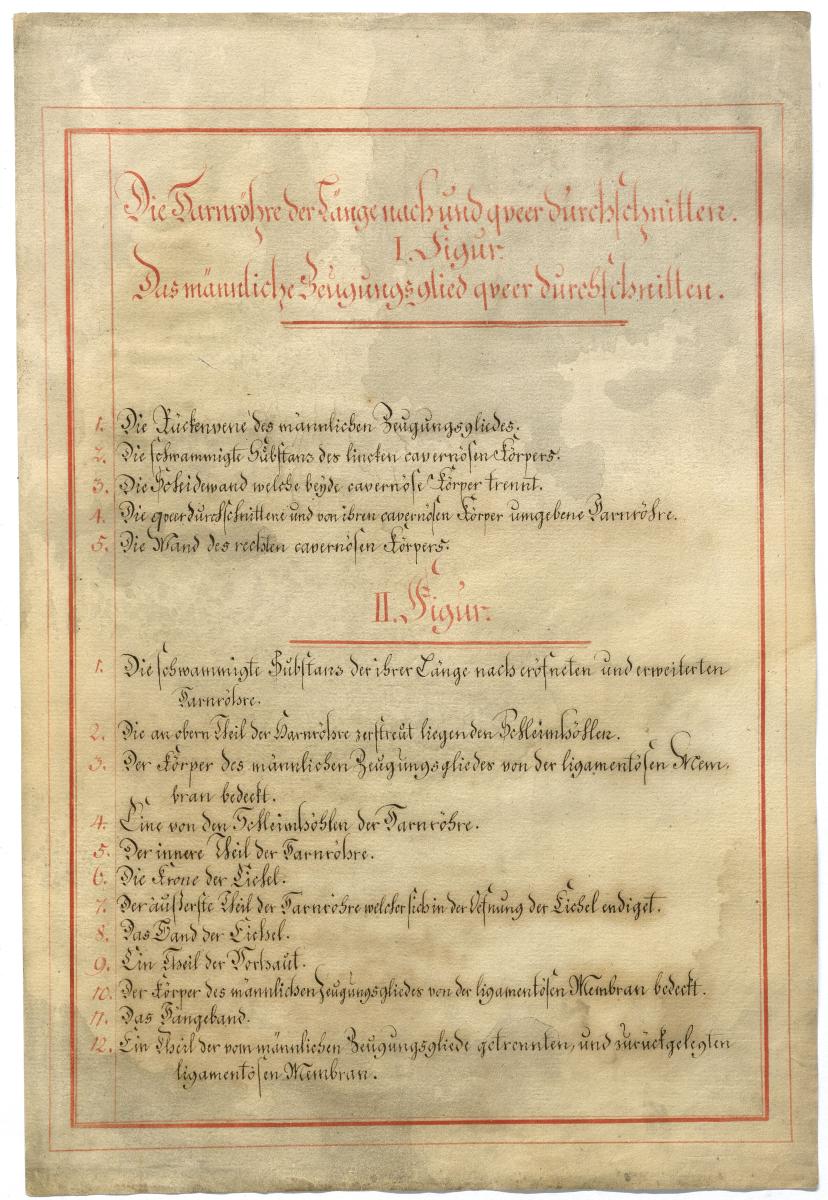 Die Harnröhre der Länge nach und qveer durchschnitten.
I. Figur.
Das männliche Zeugungsglied qveer durchschnitten.
1. Die Rückenvene des männlichen Zeugungsgliedes.
2. Die schwammigte Substans des lincken cavernösen Körpers.
3. Die Scheidewand welche beyde cavernöse Körper trennt.
4. Die qveerdurchschnittene und von ihren cavernösen Körper umgebene Harnröhre.
5. Die Wand des rechten cavernösen Körpers.
II. Figur.
1. Die schwammigte Substans der ihrer Länge nach eröfneten und erweiterten
Harnröhre.
2. Die an obern Theil der Harnröhre zerstreut liegenden Schleimhöhlen.
3. Der Körper des männlichen Zeugungsgliedes von der ligamentösen Mem-
bran bedeckt.
4. Eine von den Schleimhöhlen der Harnröhre.
5. Der innere Theil der Harnröhre.
6. Die Krone der Eichel.
7. Der äußerste Theil der Harnröhre welcher sich in der Oefnung der Eichel endiget.
8. Das Band der Eichel.
9. Ein Theil der Vorhaut.
10. Der Körper des männlichen Zeugungsgliedes von der ligamentösen Membran bedeckt.
11. Das Hängeband.
12. Ein Theil der vom männlichen Zeugungsgliede getrennten, und zurückgelegten
ligamentösen Membran.